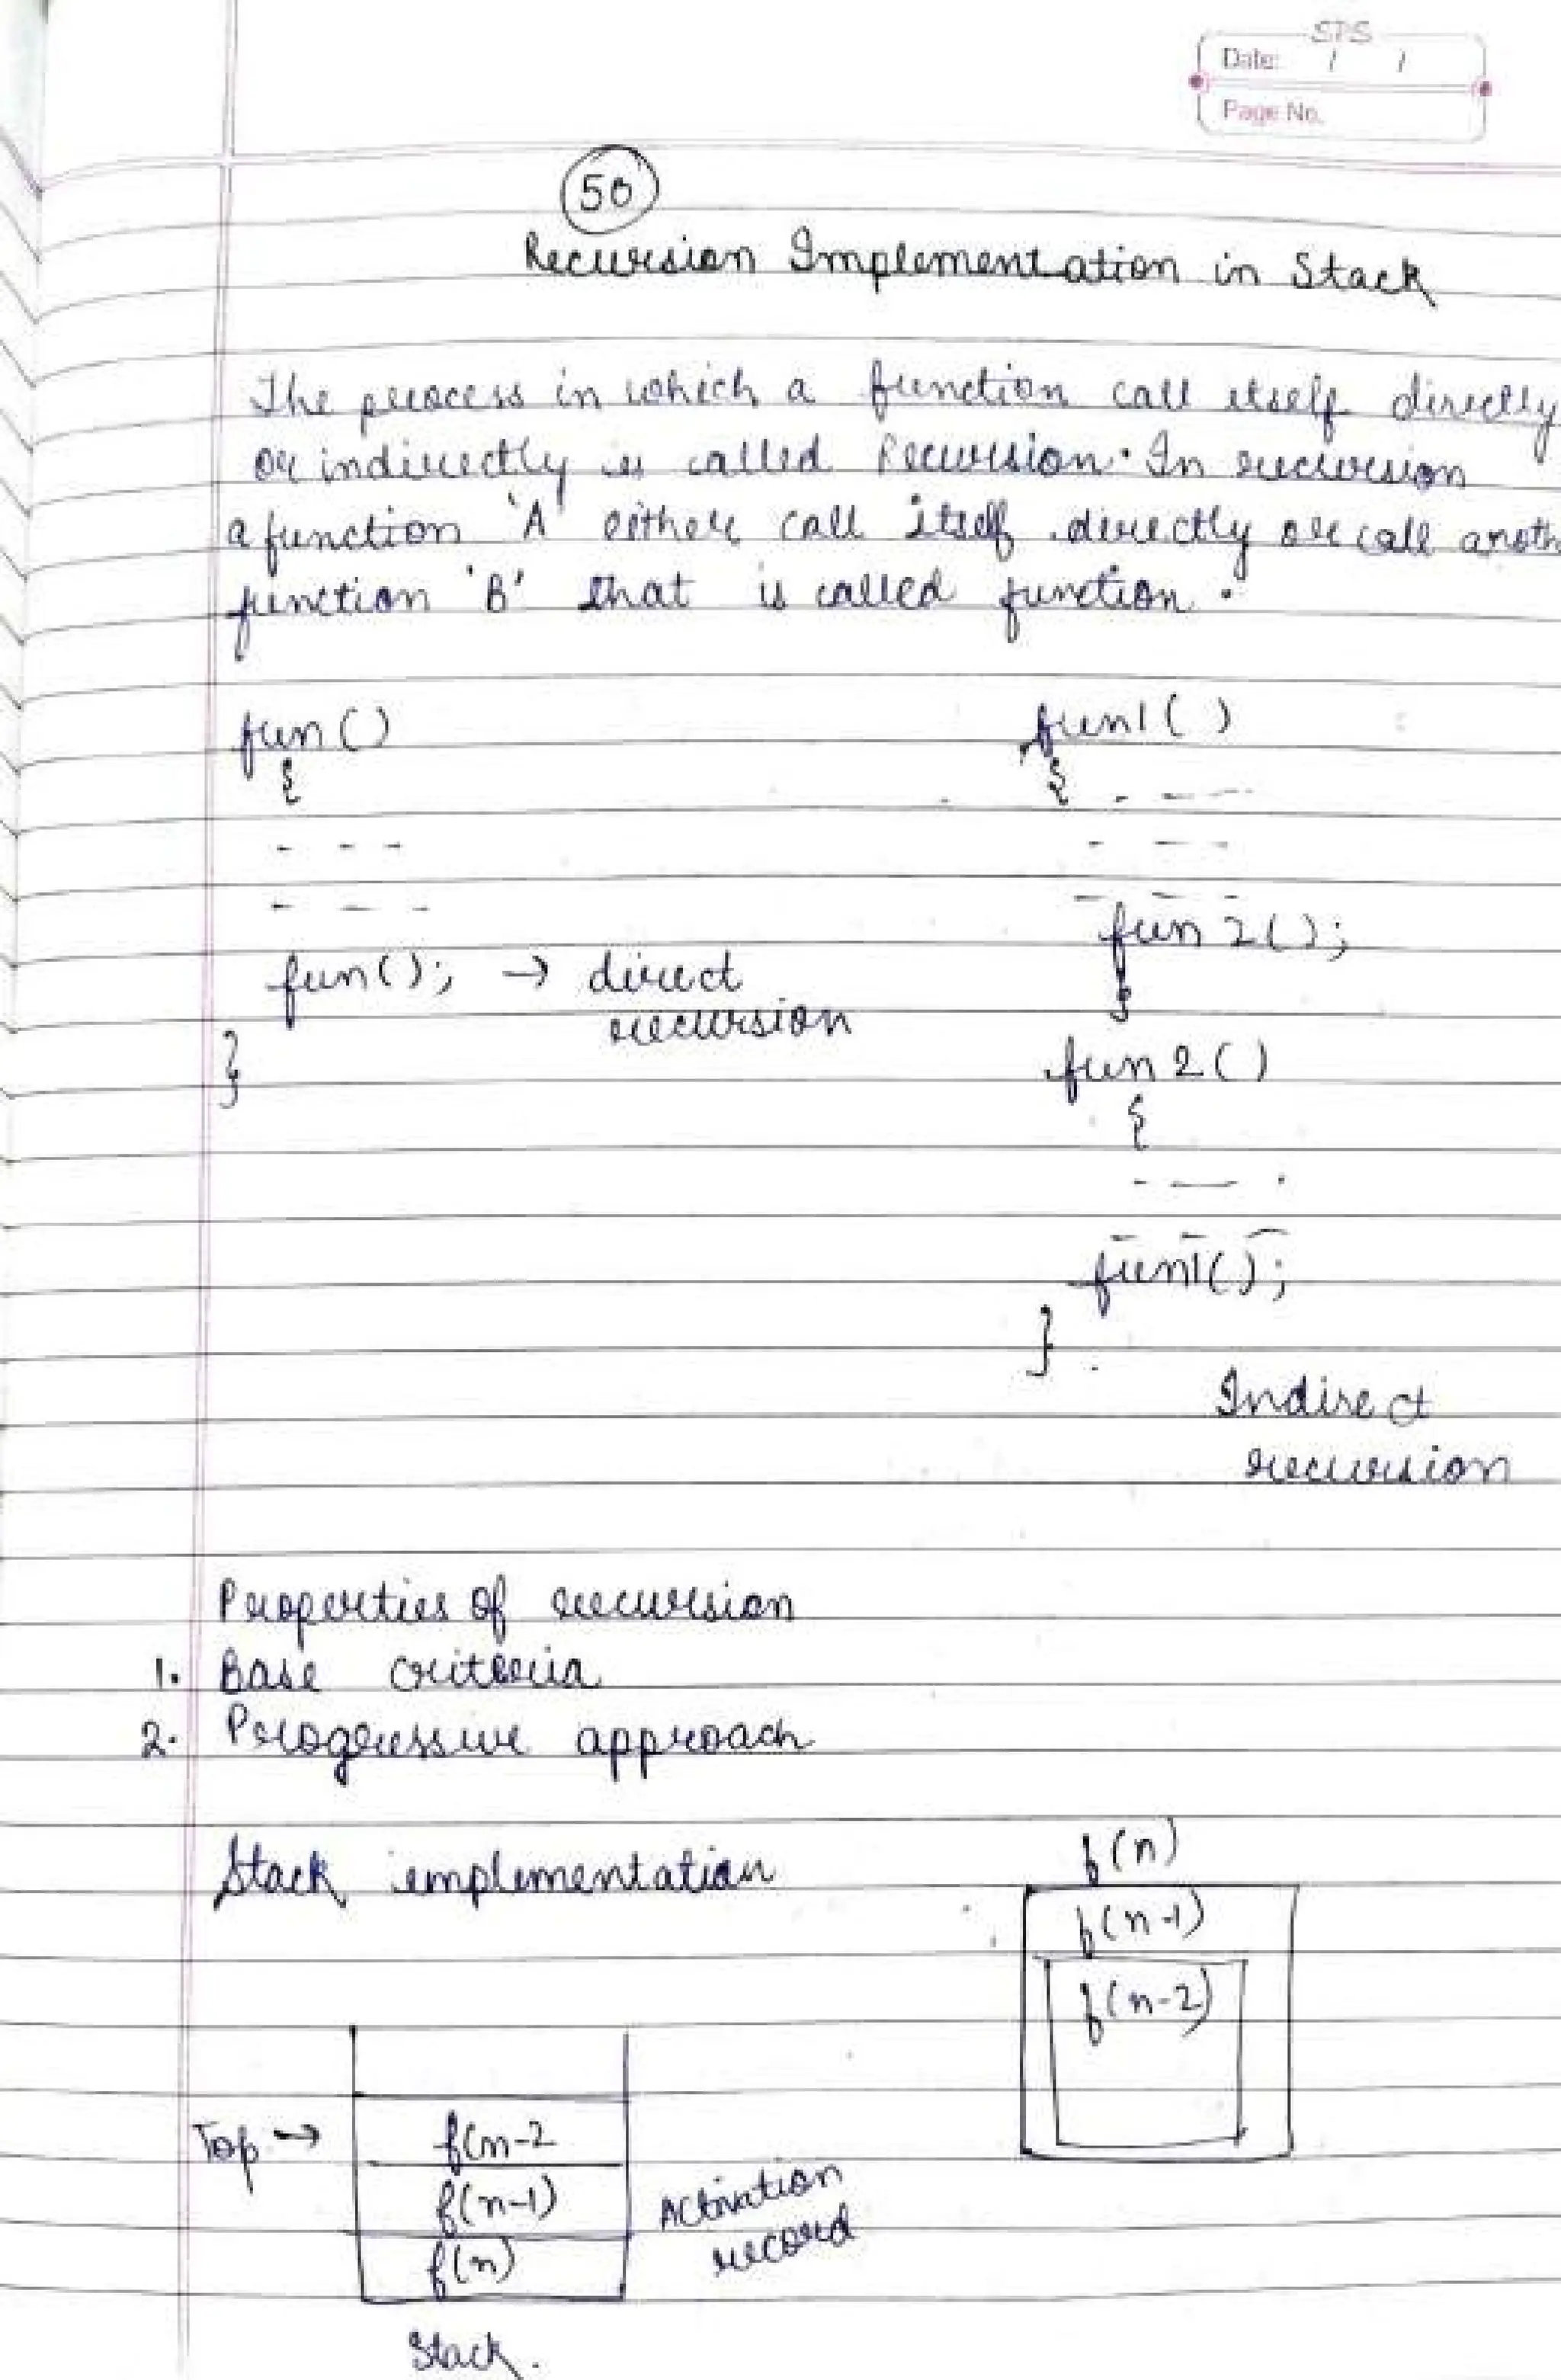 SPS
Date: / /
Page No.
50
Recursion Implementation in Stack
The process in which a function call itself directly
or indirectly is called Recursion. In recursion
a function 'A' either call itself directly or call anoth
function 'B' that is called function.
fun()
{
- - -
- - -
fun(); → direct
recursion
}
fun1()
{ - - - -
- - -
- - -
fun2();
}
fun2()
{
- - -
- - -
fun1();
}
Indirect
recursion
Properties of recursion
1. Base criteria
2. Progressive approach
Stack implementation
f(n)
f(n-1)
f(n-2)
Top → f(n-2
f(n-1)
f(n)
Activation
record
Stack.